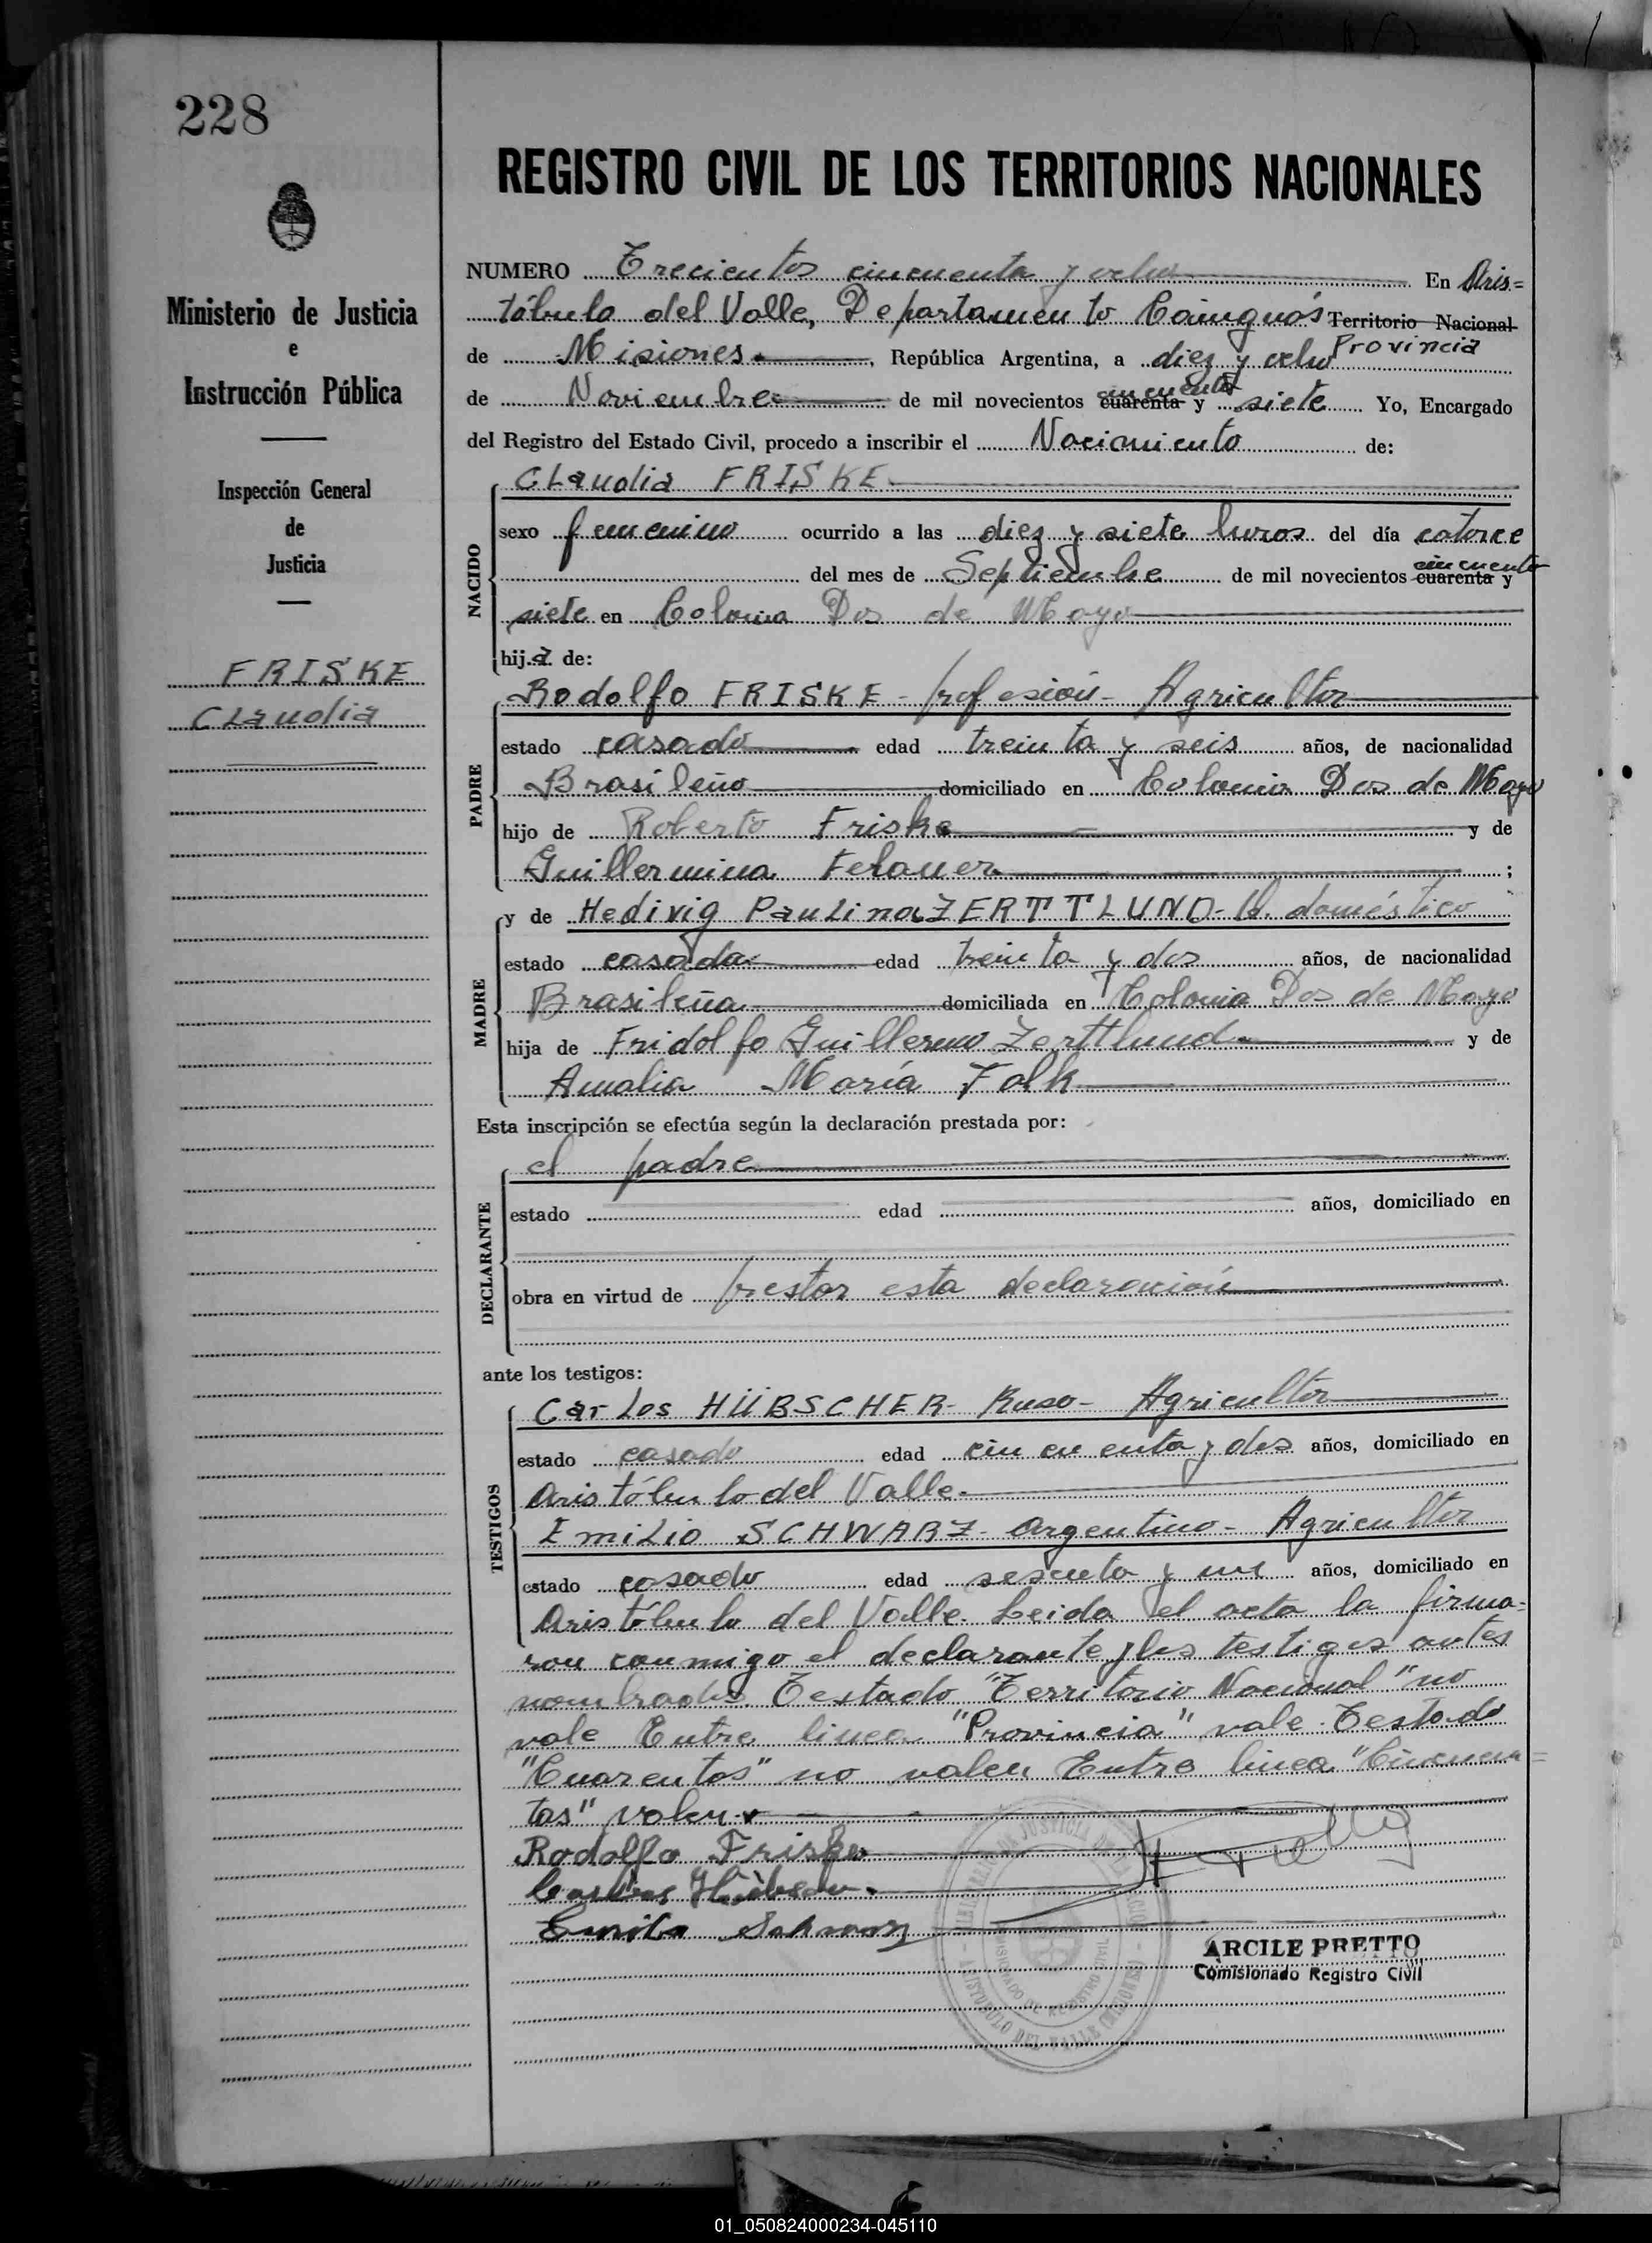 228
REGISTRO CIVIL DE LOS TERRITORIOS NACIONALES
Ministerio de Justicia
e
Instrucción Pública
Inspección General
de
Justicia
FRISKE
Claudia
NUMERO Trecientos cincuenta y ocho En Aris=
tóbulo del Valle, Departamento Cainguás Territorio Nacional
Provincia
de Misiones, República Argentina, a diez y ocho
cincuenta
de Noviembre de mil novecientos cuarenta y siete Yo, Encargado
del Registro del Estado Civil, procedo a inscribir el Nacimiento de:
NACIDO
Claudia FRISKE
sexo femenino ocurrido a las diez y siete horas del día catorce
cincuenta
del mes de Septiembre de mil novecientos cuarenta y
siete en Colonia Dos de Mayo
hija de:
PADRE
Rodolfo FRISKE - profesión - Agricultor
estado casado edad treinta y seis años, de nacionalidad
Brasileño domiciliado en Colonia Dos de Mayo
hijo de Roberto Friske y de
Guillermina ;
MADRE
y de Hedivig Paulina ZERTTLUND - Q. doméstico
estado casada edad treinta y dos años, de nacionalidad
Brasileña domiciliada en Colonia Dos de Mayo
hija de Fridolfo Guillermo Zerttlund y de
Amalia María Falk
Esta inscripción se efectúa según la declaración prestada por:
DECLARANTE
el padre
estado edad años, domiciliado en
obra en virtud de prestar esta declaración
ante los testigos:
TESTIGOS
Carlos HÜBSCHER - Ruso - Agricultor
estado casado edad cincuenta y dos años, domiciliado en
Aristóbulo del Valle.
Emilio SCHWARZ - Argentino - Agricultor
estado casado edad sesenta y un años, domiciliado en
Aristóbulo del Valle. Leida el acta la firma=
ron conmigo el declarante y los testigos antes
nombrados. Testado "Territorio Nacional" no
vale Entre linea "Provincia" vale. Testado
"Cuarentas" no valen Entre linea "Cincuen=
tas" valen.
Rodolfo Friske
Carlos Hübscher.
Emilio Schwarz
ARCILE PRETTO
Comisionado Registro Civil
01_050824000234-045110